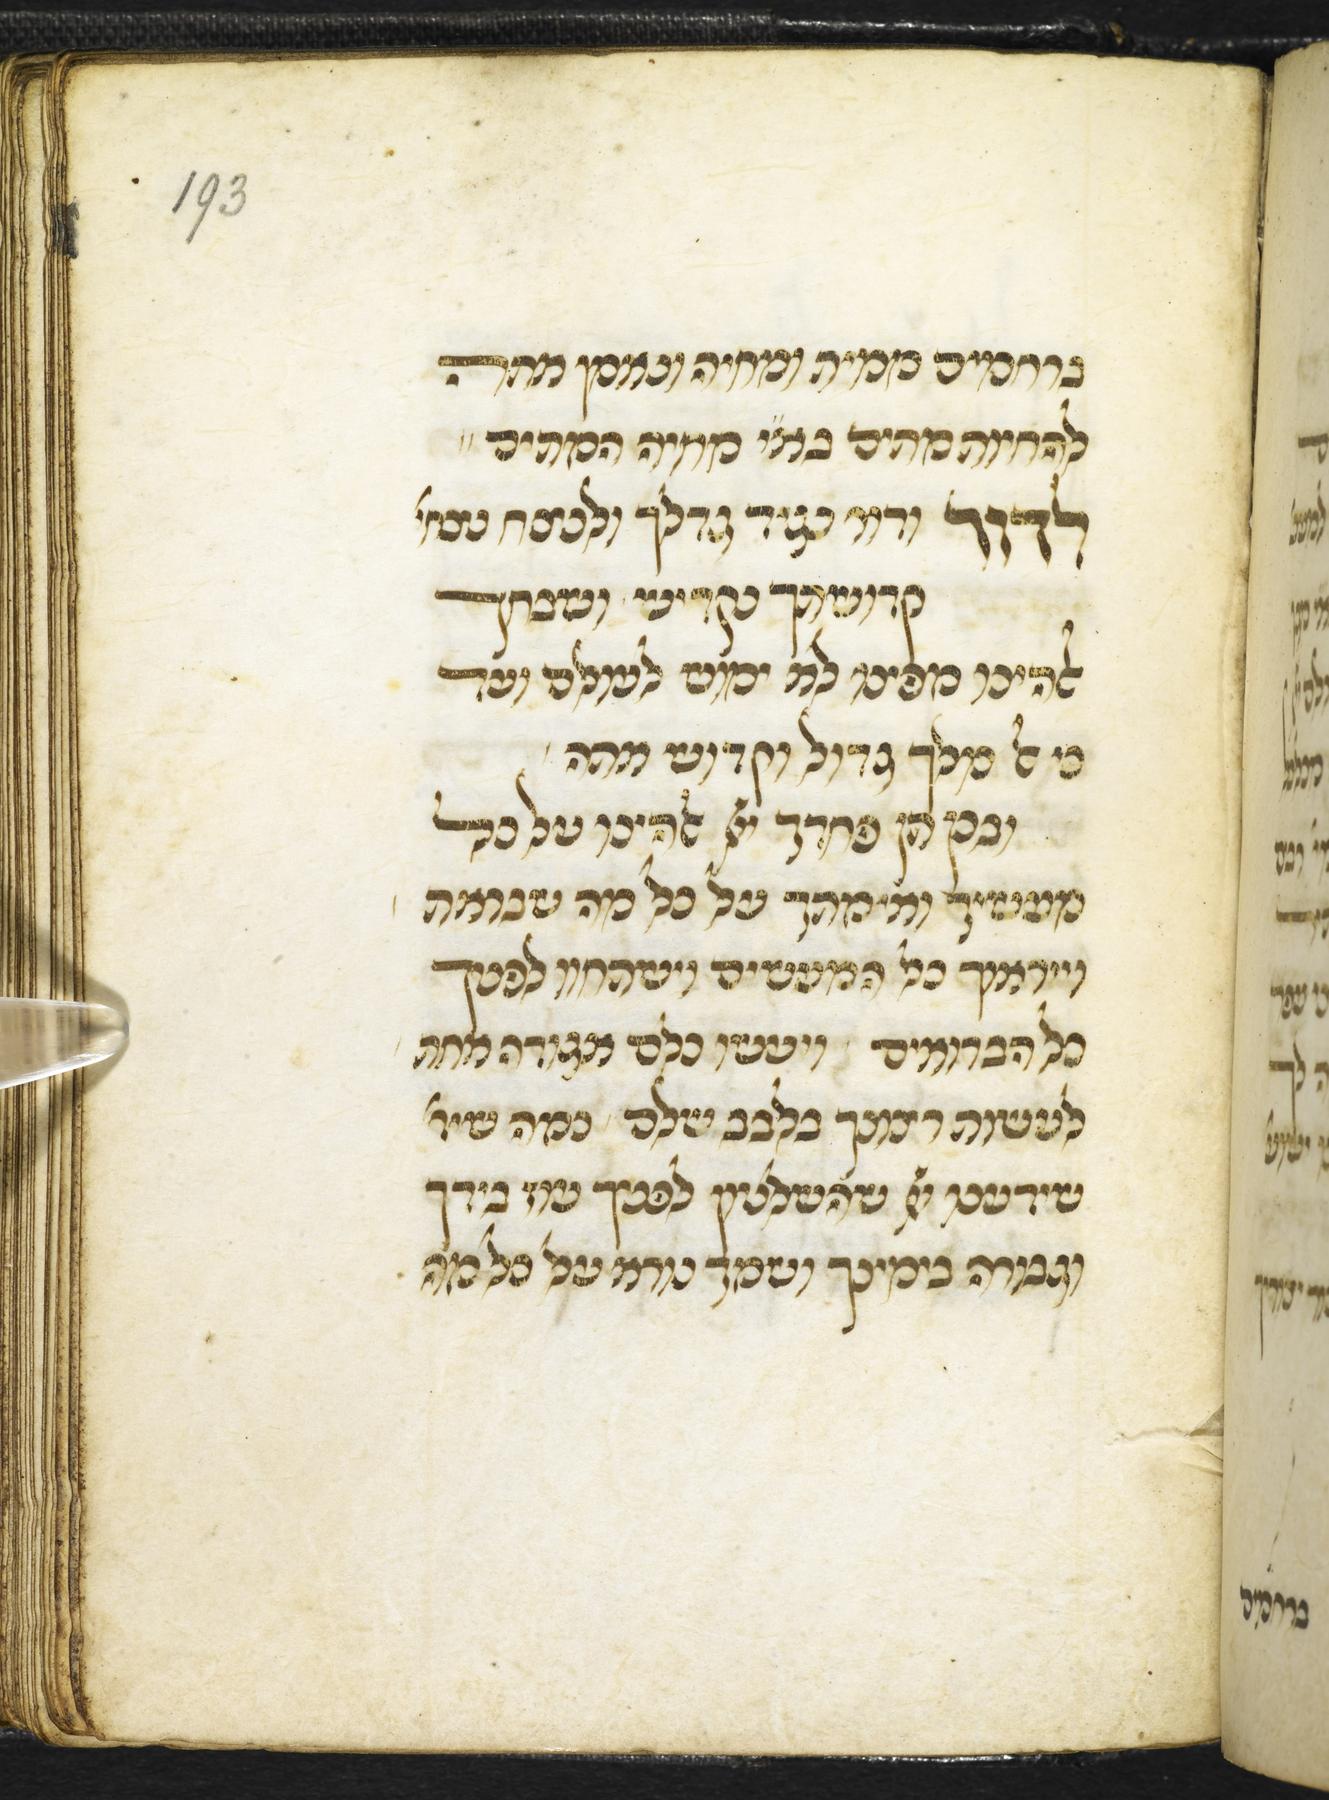 193
ברחמים ממית ומחיה ונאמן אתה
להחיות מתים בא״י מחיה המתים
לדור ודור נגיד גדלך ולנצח נצחי
קדושתך נקדיש ושבחך
אלהינו מפינו לא ימוש לעולם ועד
כי אל מלך גדול וקדוש אתה
ובכן תן פחדך יי אלהינו על כל
מעשיך ואימתך על כל מה שבראת
וייראוך כל המעשים וישתחוו לפניך
כל הברואים ויעשו כלם אגודה אחת
לעשות רצונך בלבב שלם כמה שיד׳
שידענו יי שהשלטון לפניך עוז בידך
וגבורה בימינך ושמך נורא על כל מה
ברחמים